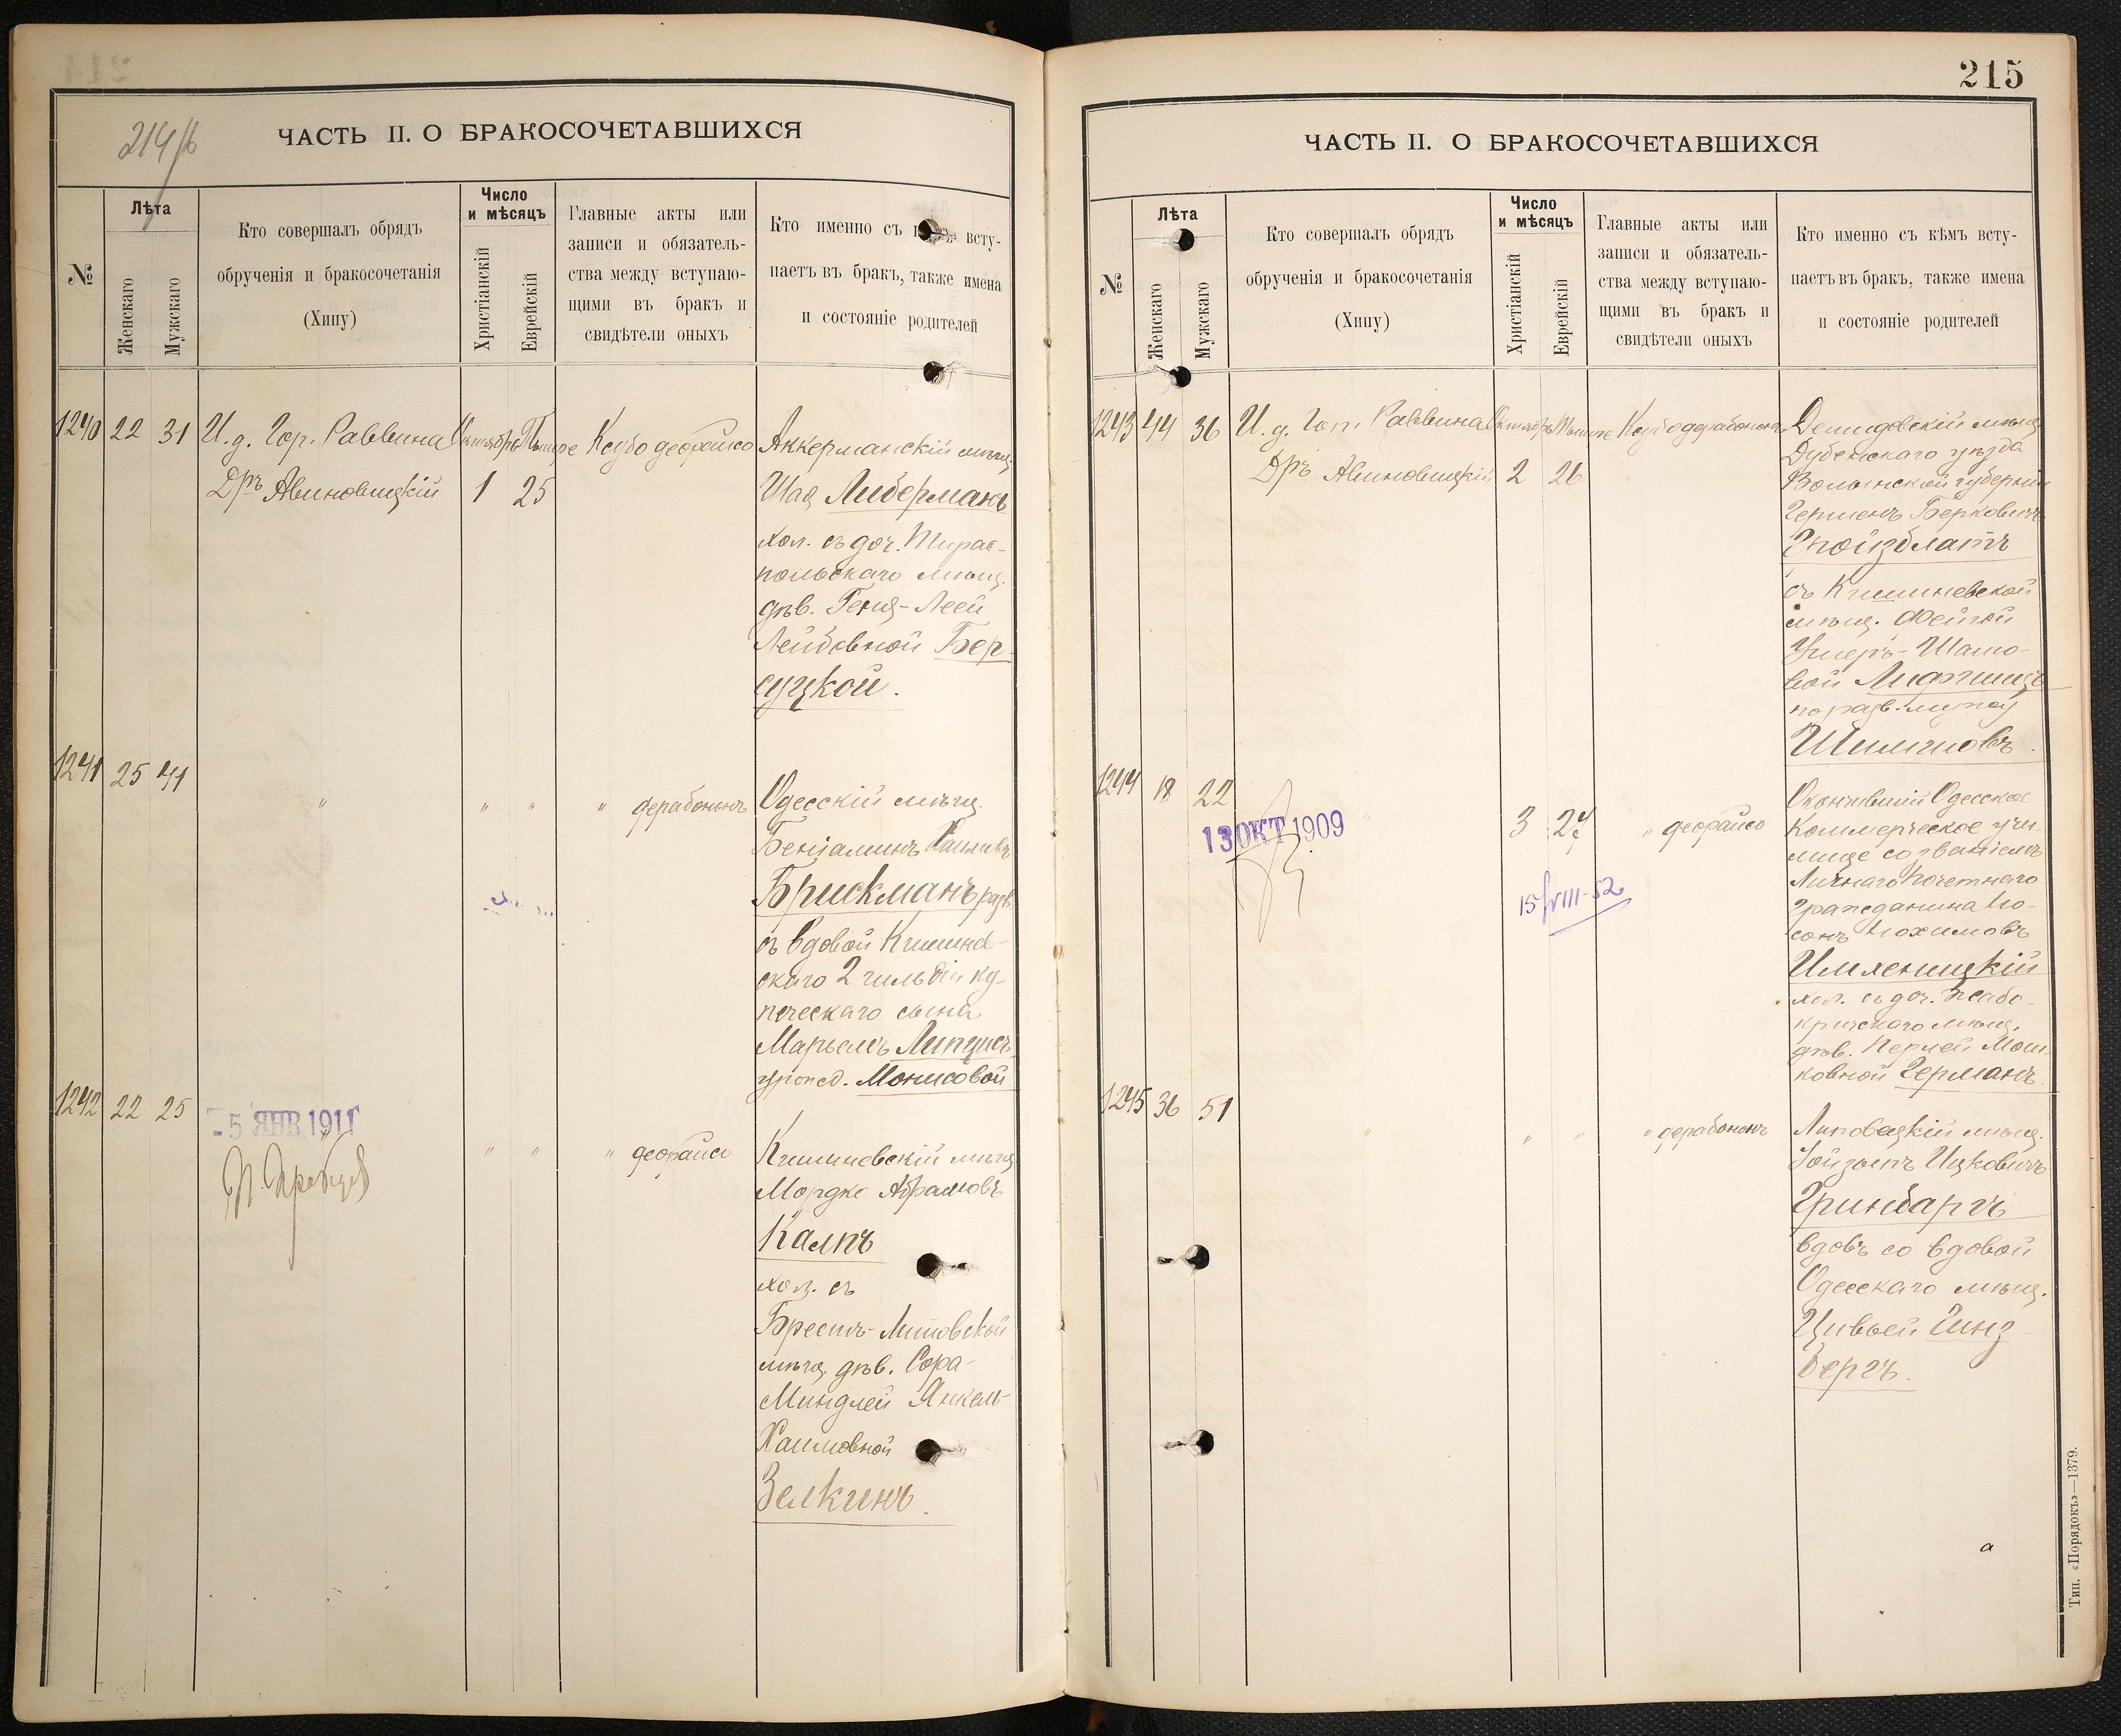 214/б
ЧАСТЬ II. О БРАКОСОЧЕТАВШИХСЯ
№
Лѣта
Женскаго
Мужскаго
Кто совершалъ обрядъ
обрученія и бракосочетанія
(Хипу)
Число
и мѣсяцъ
Христіанскій
Еврейскій
Главные акты или
записи и обязатель-
ства между вступаю-
щими въ бракъ и
свидѣтели оныхъ
Кто именно съ всту-
паетъ въ бракъ, также имена
и состояніе родителей
1240 22 31 И. д. Гор. Раввина Октябрь Тишре Ксубо деорайсо Аккерманскій мѣщ.
Дръ Авиновицкій 1 25
Либерманъ
хол. съ доч. Тирас-
польскаго мѣщ.
дѣв. Геня-Леей
Лейбовной Бер-
суцкой.
1241 25 41
" " " " дерабононъ Одесскій мѣщ.
Беніаминъ
Брискманъ разв.
съ вдовой Кишинев-
скаго 2 гильдіи ку-
печескаго сына
Марьемъ Липцисъ
урожд. Монисовой
1242 22 25
- 5 ЯНВ 1911
" " " деорайсо Кишиневскій мѣщ.
Мордко Абрамовъ
Калпъ
хол. съ
Брестъ-Литовской
мѣщ. дѣв. Сора-
Миндлей Янкель-
Хаимовной
Зелкинъ.
215
ЧАСТЬ II. О БРАКОСОЧЕТАВШИХСЯ
№
Лѣта
Женскаго
Мужскаго
Кто совершалъ обрядъ
обрученія и бракосочетанія
(Хипу)
Число
и мѣсяцъ
Христіанскій
Еврейскій
Главные акты или
записи и обязатель-
ства между вступаю-
щими въ бракъ и
свидѣтели оныхъ
Кто именно съ кѣмъ всту-
паетъ въ бракъ, также имена
и состояніе родителей
1243 44 36 И. д. Гор. Раввина Октябрь Тишре Ксубо дерабононъ Демидовскій мѣщ.
Дубенскаго уѣзда
Дръ Авиновицкій 2 26 Волынской губерніи
Герценъ Берковичъ
съ Кишиневской
мѣщ. Фейгой
Лифшицъ
по разв. мужу
1244 18 22
Окончившій Одесское
13 ОКТ 1909 " 3 27 " деорайсо Коммерческое учи-
лище со званіемъ
Личнаго Почетнаго
15/VIII-52
Гражданина Ио-
хол. съ доч.
дѣв. Перлей Мош-
ковной Германъ.
1245 36 51
" " " " дерабононъ Липовецкій мѣщ.
Ицковичъ
Гринбаргъ
вдовъ со вдовой
Одесскаго мѣщ.
Цивьей Гинз-
бергъ.
Тип. «Порядокъ»—1379.